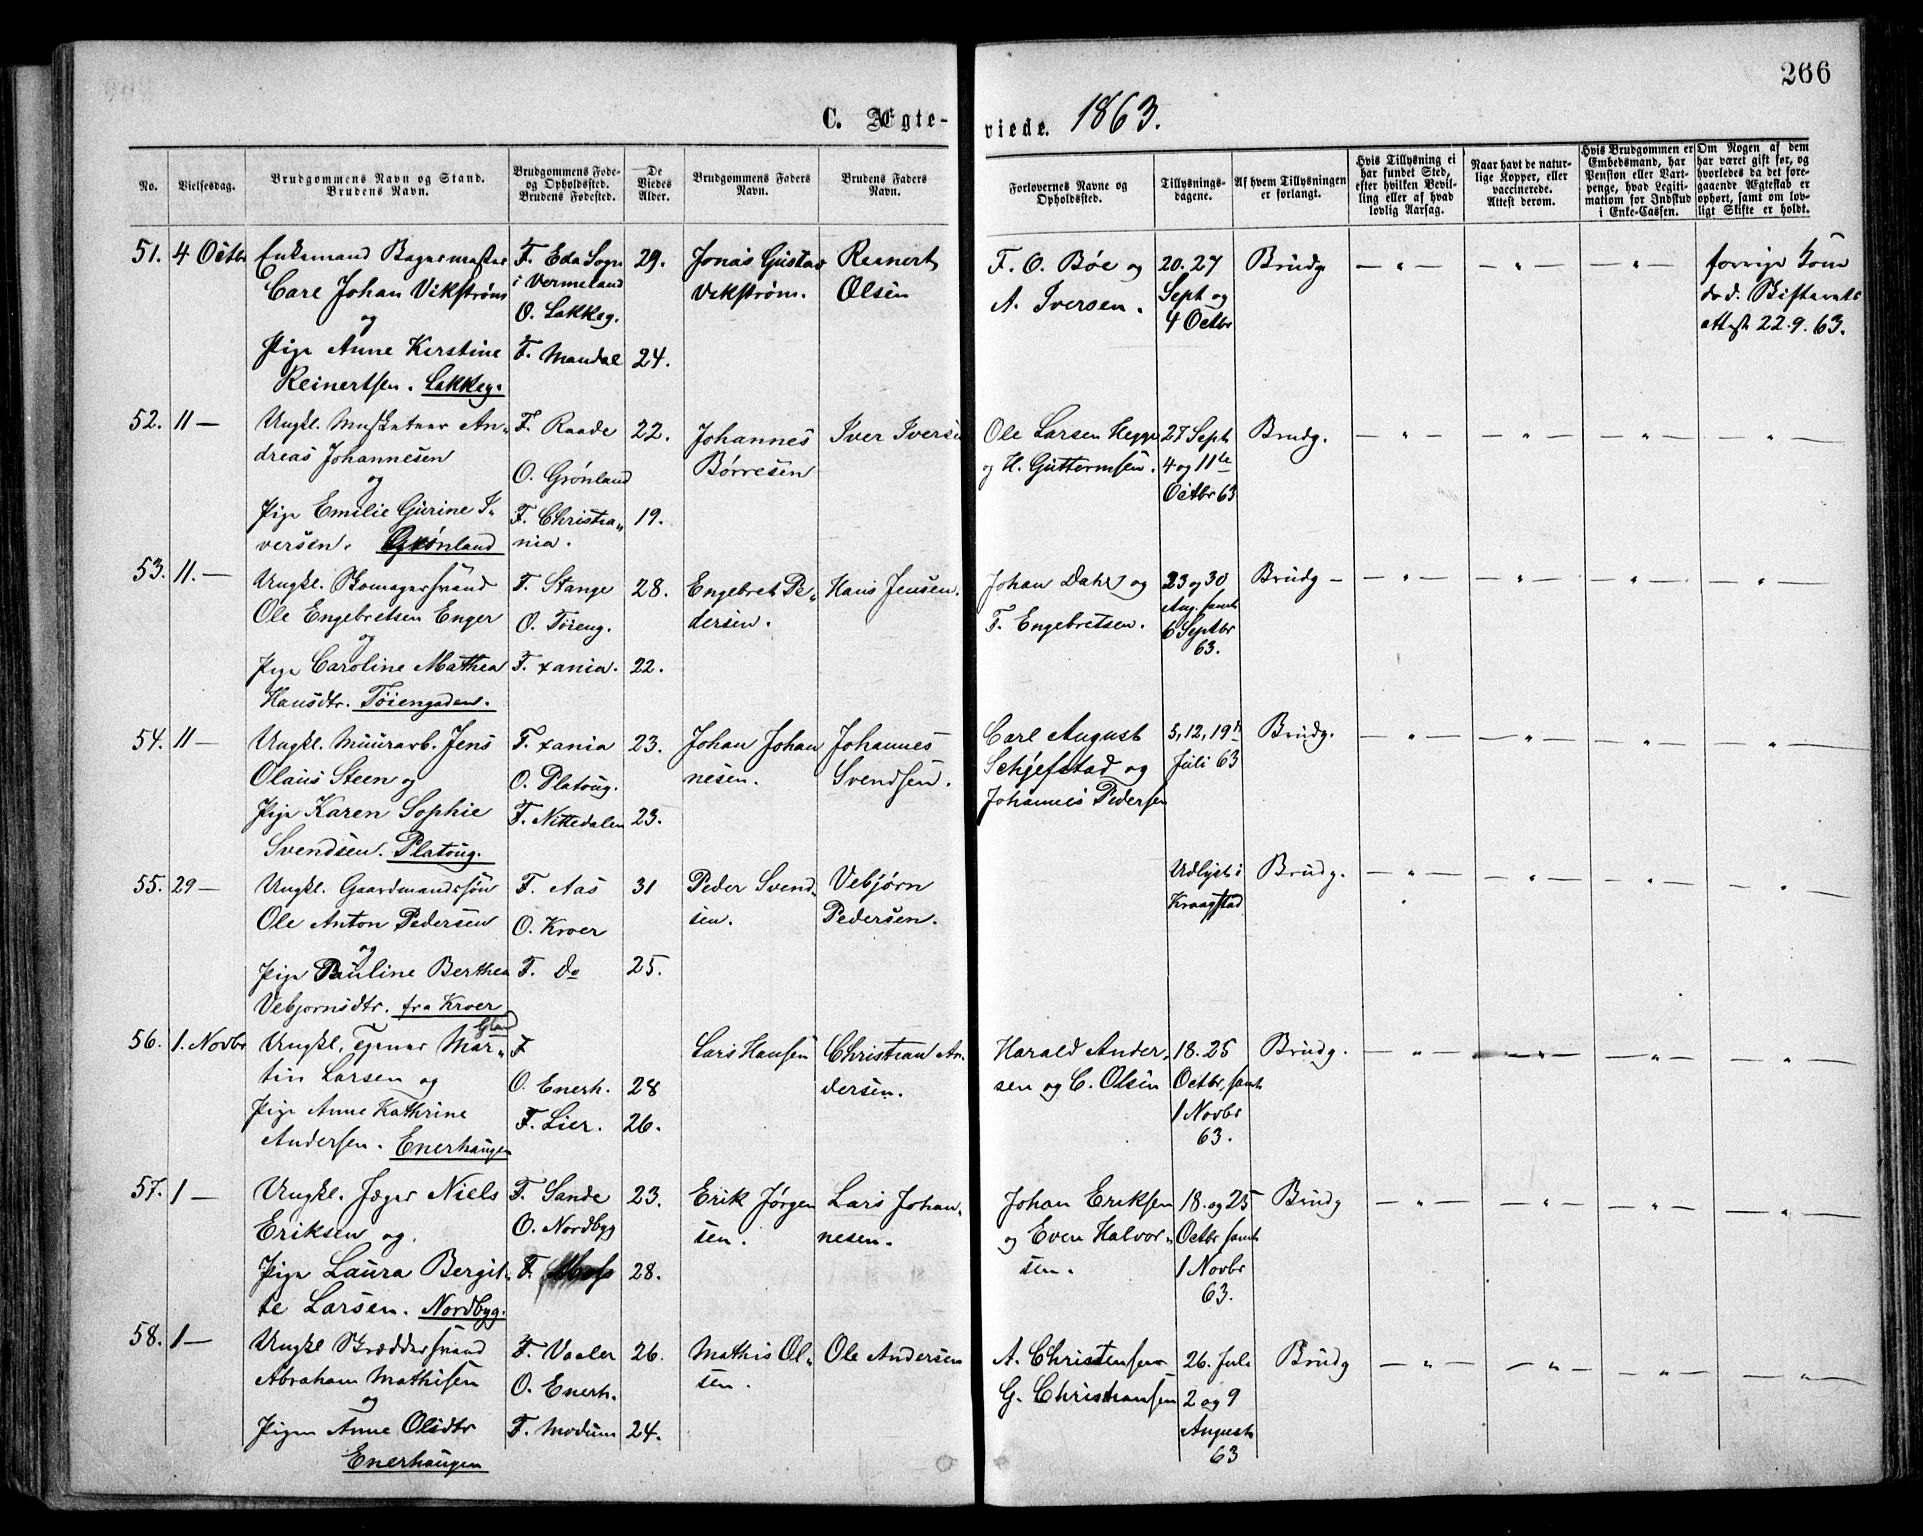 266
C. Ægte-
viede. 1863.
No.
Vielsesdag.
Brudgommens Navn og Stand.
Brudens Navn.
Brudgommens Føde-
og Opholdssted.
Brudens Fødested.
De
Viedes
Alder.
Brudgommens Faders
Navn.
Brudens Faders
Navn.
Forlovernes Navne og
Opholdssted.
Tillysnings-
dagene.
Af hvem Tillysningen
er forlangt.
Hvis Tillysning ei
har fundet Sted,
efter hvilken Bevil-
ling eller af hvad
lovlig Aarsag.
Naar havt de natur-
lige Kopper, eller
vaccinerede.
Attest derom.
Hvis Brudgommen er
Embedsmand, har
Pension eller Vart-
penge, hvad Legiti-
mation for Indskud
i Enke-Cassen.
Om Nogen af dem
har været gift før, og
hvorledes da det fore-
gaaende Ægteskab er
ophørt, samt om lov-
ligt Skifte er holdt.
51. 4 Octbr Enkemand Bagermester F. Eda Sogn 29. Jonas Gustav Reinert F. O. Bøe og 20. 27 Brudg — " — — " — — " — forrige Kone
Carl Johan Vikstrøm i Vermeland Vikstrøm. Olsen A. Iversen. Sept og død. Skiftevæts
og O. Lakkeg. 4 Octbr attest 22.9.63.
Pige Anne Kirstine F. Mandal 24.
Reinertsen. Lakkeg.
52. 11 — Ungkl. Musketeer An- F. Raade 22. Johannes Iver Iversen Ole Larsen Hegge 27 Sept Brudg. — " — — " — — " — — " —
dreas Johannesen O. Grønland Børresen og H. Guttormsen. 4 og 11te
og Octbr 63
Pige Emilie Gurine I- F. Christia- 19.
versen. Grønland nia.
53. 11. — Ungkl. Skomagersvend F. Stange 28. Engebret Pe- Hans Jensen. Johan Dahl og 23 og 30 Brudg — — " — — " — — " — — " —
Ole Engebretsen Enger O. Tøieng. dersen. F. Engebretsen. Aug. samt
og 6 Septbr
Pige Caroline Mathea F. xania. 22. 63.
Hansdtr. Tøiengaden.
54. 11 — Ungkl. Muurarb. Jens F. xania 23. Johan Johan Johannes Carl August 5, 12, 19de Brudg. — " — — " — — " — — " —
Olaus Steen og O. Platoug. nesen. Svendsen. Schjefstad og Juli 63
Pige Karen Sophie F. Nittedalen 23. Johannes Pedersen
Svendsen. Platoug.
55. 29 — Ungkl. Gaardmandssøn F. Aas 31 Peder Svend- Vebjørn Udlyst i Brudg. — " — — " — — " — — " —
Ole Anton Pedersen O. Kroer sen. Pedersen. Kraagstad
og
Pige Pauline Berthea F. Do 25.
Vebjørnsdtr. fra Kroer
56. 1. Novbr Ungkl. Mar- F Lars Hansen Christian An- Harald Ander- 18. 25 Brudg. — " — — " — — " — — " —
tin Larsen og O. Enerh. 28 dersen. sen og C. Olsen Octbr, samt
Pige Anne Kathrine F. Lier. 26. 1 Novbr
Andersen. Enerhaugen 63.
57. 1 — Ungkl. Jæger Niels F. Sande 23. Erik Jørgen Lars Johan- Johan Eriksen 18. og 25 Brudg — " — — " — — " — — " —
Eriksen og. O. Nordbyg sen. nesen. og Even Halvor- Octbr samt
Pige Laura Bergit- F. Moss 28. sen. 1 Novbr
te Larsen. Nordbyg. 63.
58. 1 — Ungkl Bræddersvend F. Vaaler 26. Mathis Ol- Ole Andersen A. Christensen 26. Juli Brudg — " — — " — — " — — " —
Abraham Mathisen O. Enerh. sen. G. Christiansen 2 og 9
og August
Pigen Anne Olsdtr F. Modum 24. 63
Enerhaugen